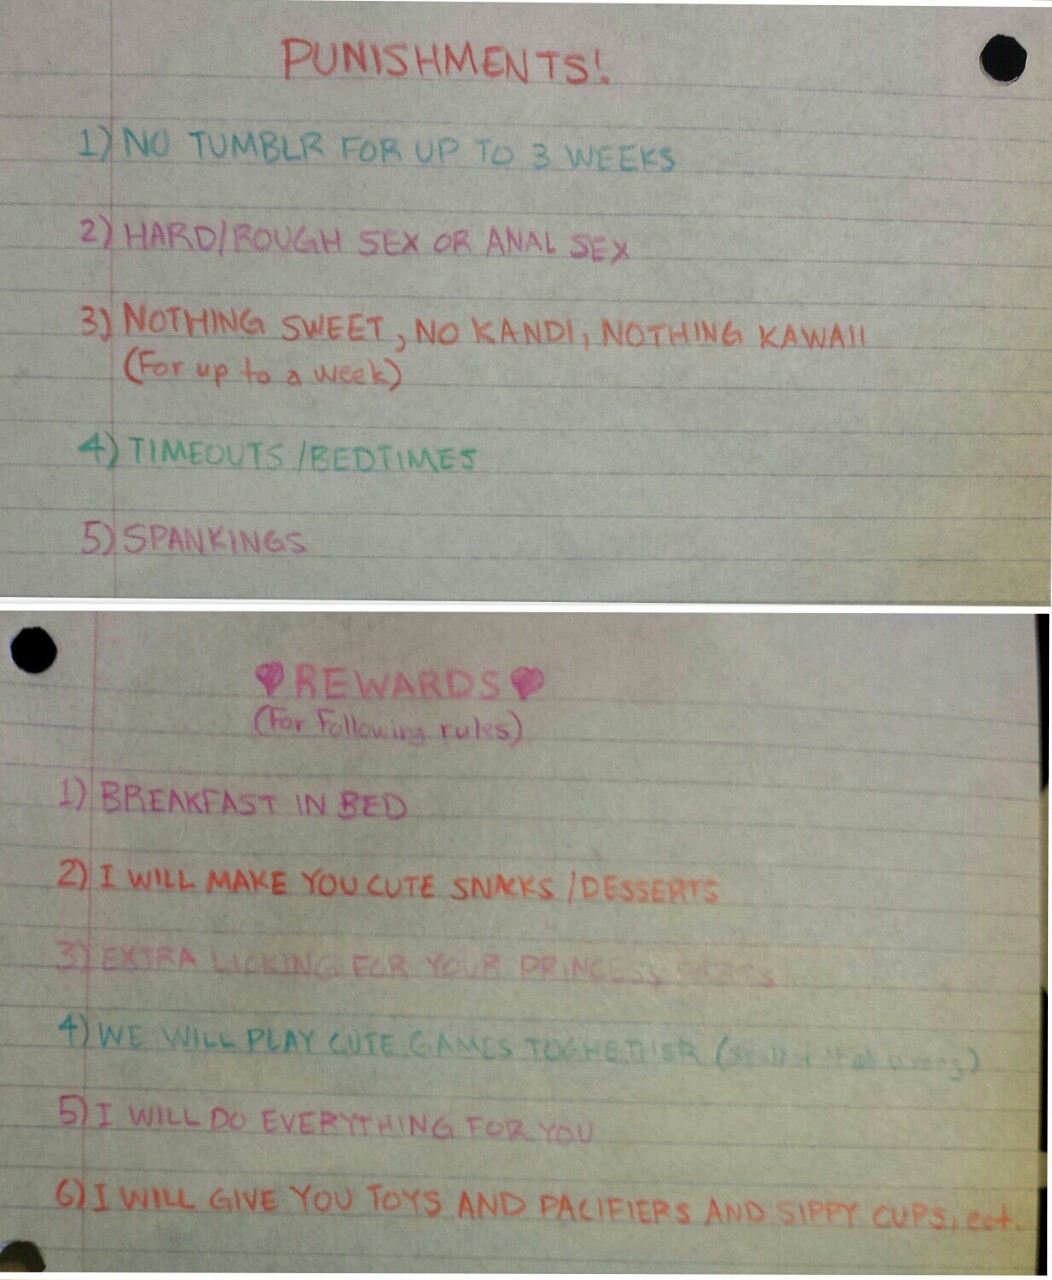 PUNISHMENTS!
1) NO TUMBLR FOR UP TO 3 WEEKS
2) HARD/ROUGH SEX OR ANAL SEX
3) NOTHING SWEET, NO KANDI, NOTHING KAWAII
(For up to a week)
4) TIMEOUTS /BEDTIMES
5) SPANKINGS
♥REWARDS♥
(For Following rules)
1) BREAKFAST IN BED
2) I WILL MAKE YOU CUTE SNACKS /DESSERTS
3) EXTRA LICKING FOR YOUR PRINCESS
4) WE WILL PLAY CUTE GAMES TOGHETHER
5) I WILL DO EVERYTHING FOR YOU
6) I WILL GIVE YOU TOYS AND PACIFIERS AND SIPPY CUPS, ect.